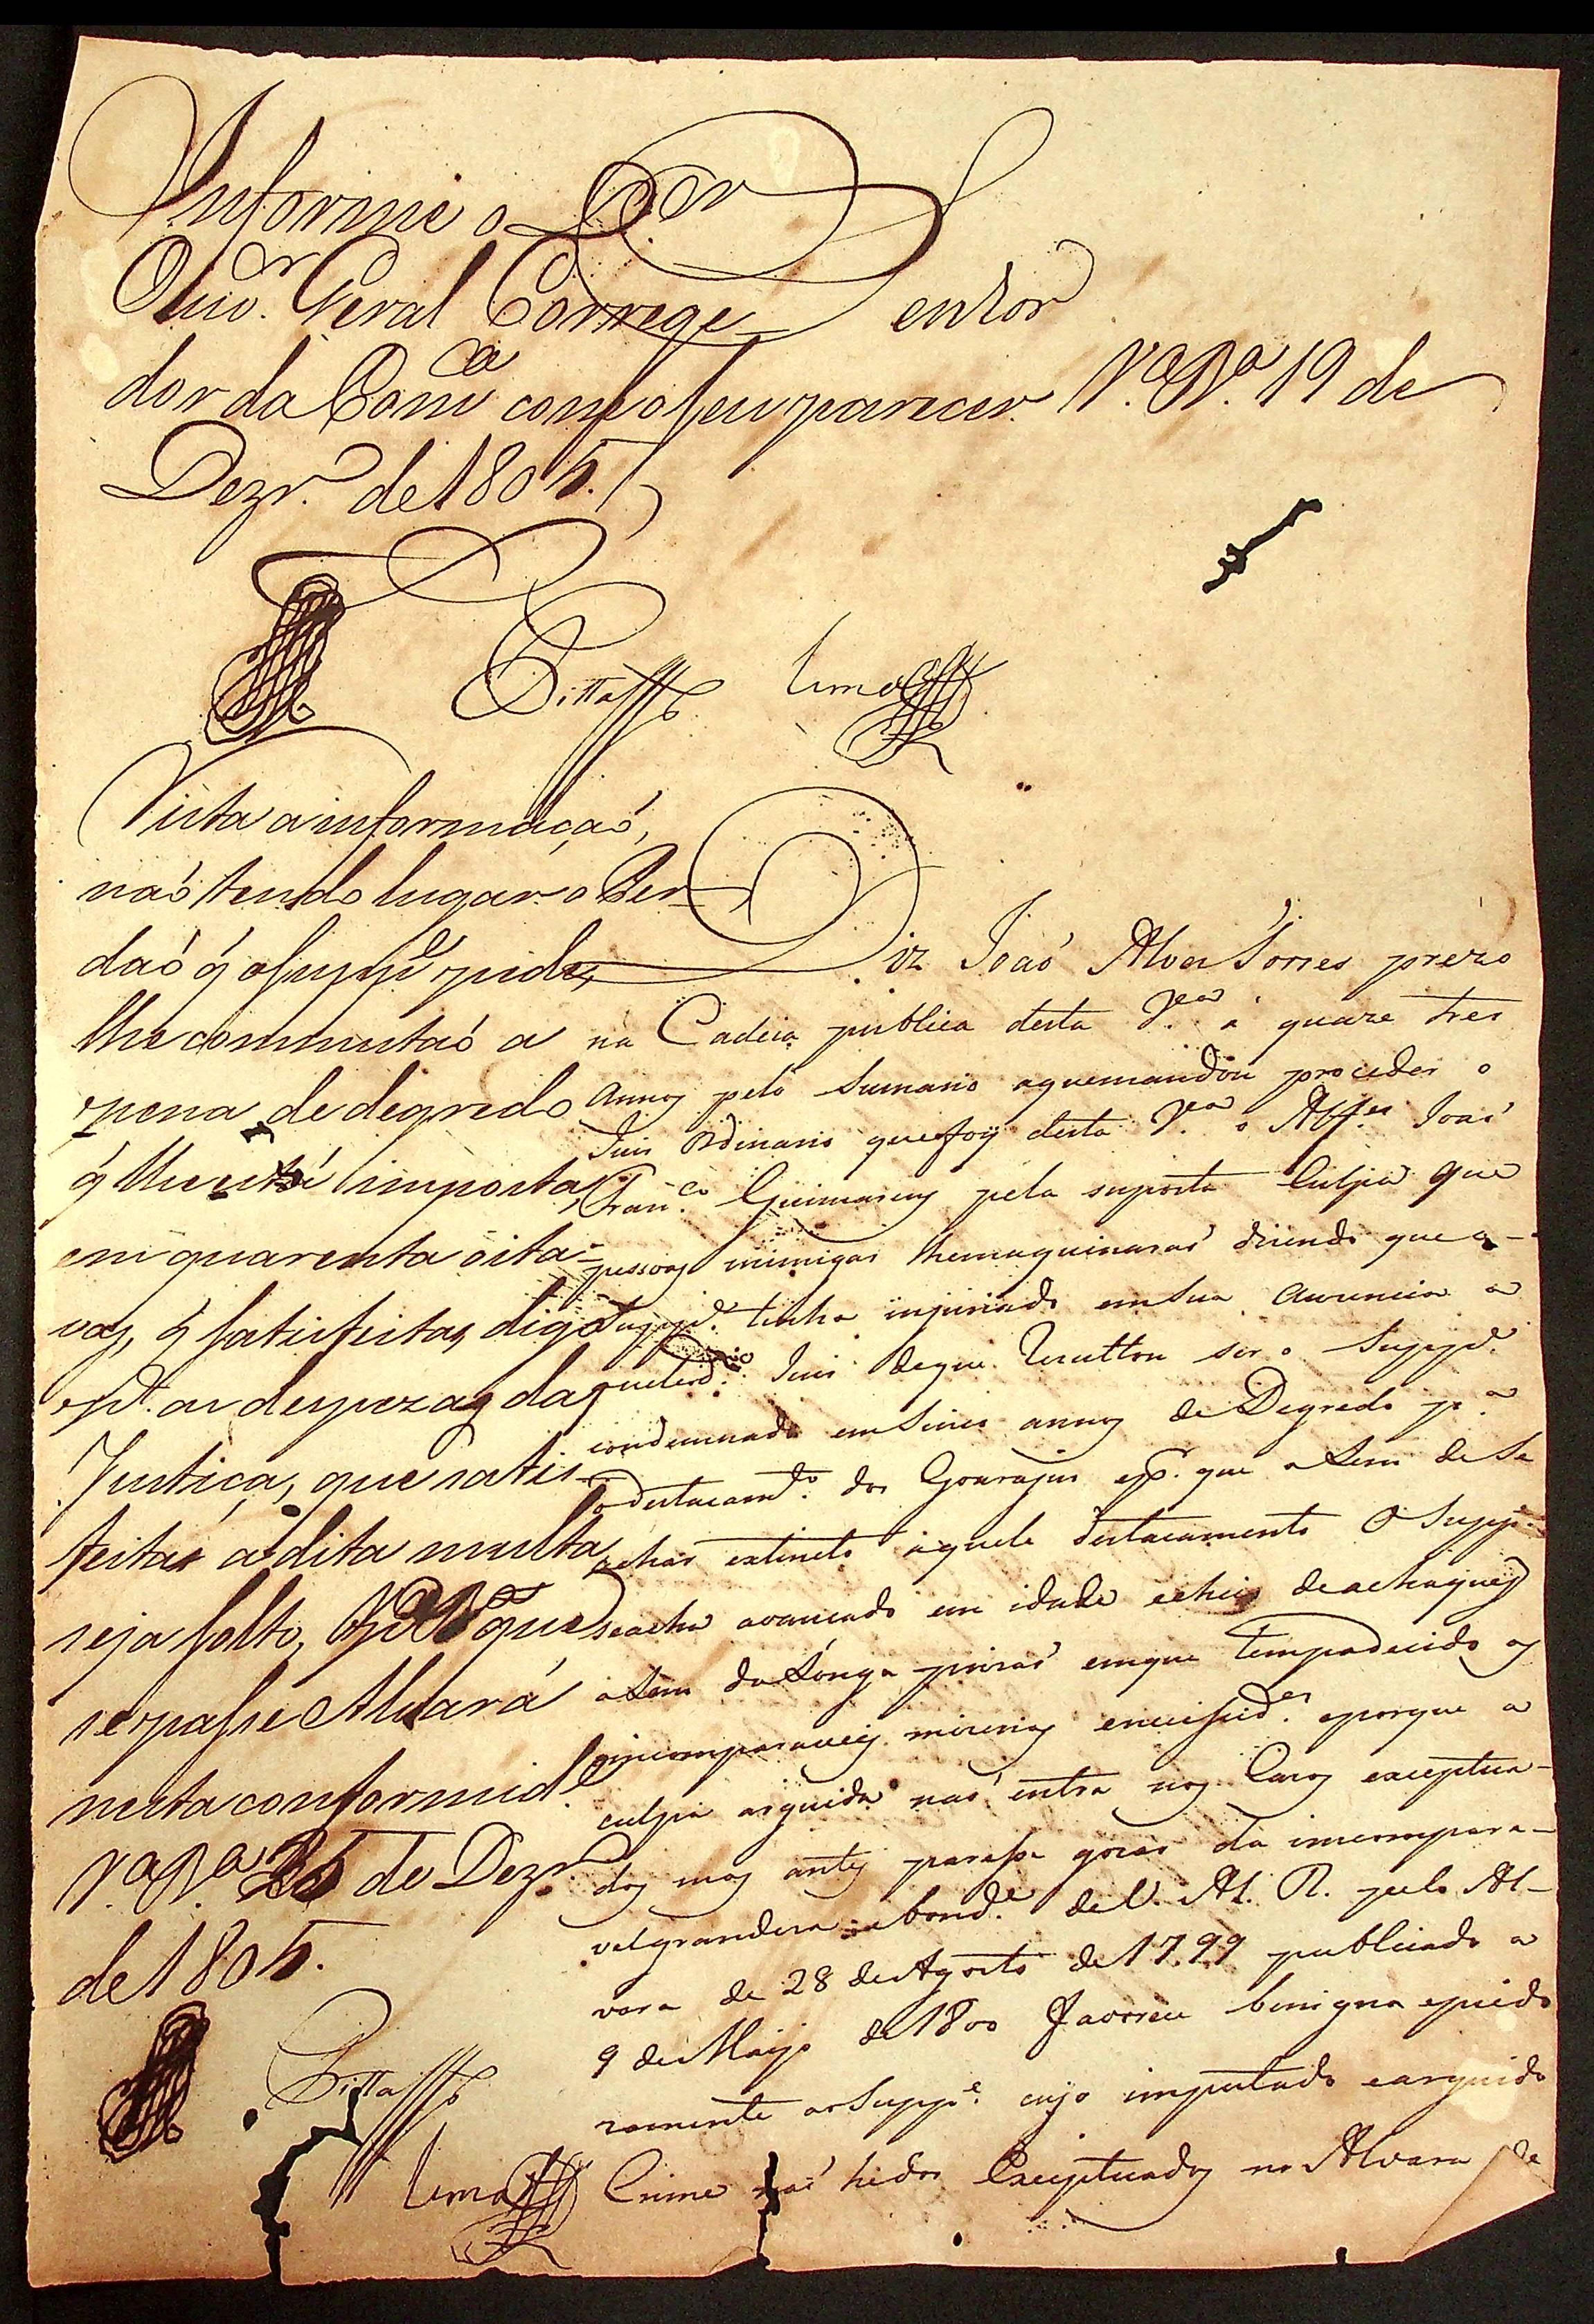 Informe o D.or
Ouv.or Geral Correge
dor da Com.ca com o seu parecer. V.a B.a 19 de
Dezr.o de 1805.
Pitta Lima
Vista a informaçaõ,
naõ tendo lugar o Per-
daõ q̃ o Supp.e pede,
lhe commutaõ a
pena de degredo
q̃ lhe está imposta,
em quarenta oita-
vas, q̃ satisfeitas, digo
p.a as despezas da
Justiça, que satis-
feita a dita multa
seja solto, p.a o que
se passe Alvará
nesta conformid.e
V.a B.a de Dezr.o
de 1805.
Pitta
Lima
Senhor
Diz Joaõ Alves Torres prezo
na Cadeia publica desta V.a a quaze tres
annos pelo sumario a que mandou proceder o
Juis Ordinario que foy desta V.a o Alf.es Joaõ
Fran.co Guimarens pela suposta Culpa que
pessoas inimigas lhe maquinaraõ dizendo que o
Supp.e tinha injuriado em sua auzencia a
quele d.o Juis de que rezultou ser o Supp.e
condemnado em sinco annos de Degredo p.a
o destacam.to dos Goarapus e p.r que alem de se
achar extincto aquele destacamento o Supp.e
se acha avancado em idade e cheio de achaques
alem da Longa prizaõ em que tem padecido as
incomparaveis mizerias e necessid.es e porque a
culpa arguida naõ entra nos Cazos exceptua-
dos mas antes passa gozar da incompara-
vel grandeza e bond.e de V. A. R. pelo Al-
vara de 28 de Agosto de 1799 publicado a
9 de Maijo de 1800 Favoreu benigna e pied
zamente ao Supp.e cujo imputado e arguido
Crime naõ he dos Exceptuados no Alvara de